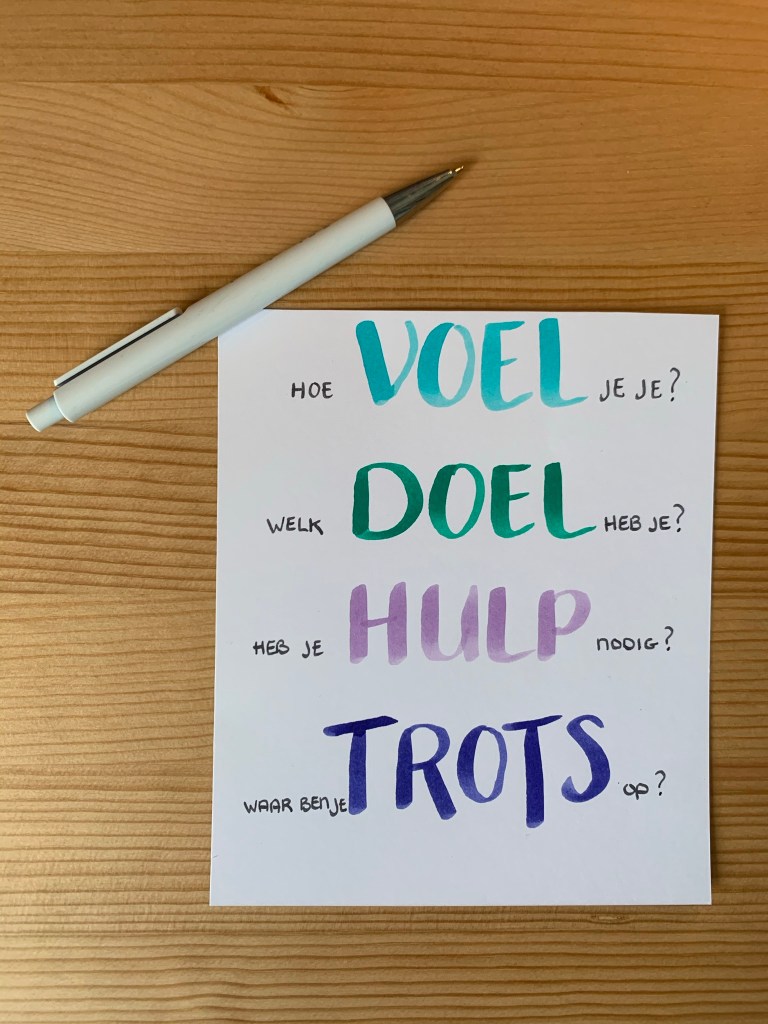 HOE VOEL JE JE?
WELK DOEL HEB JE?
HEB JE HULP NODIG?
WAAR BEN JE TROTS OP?